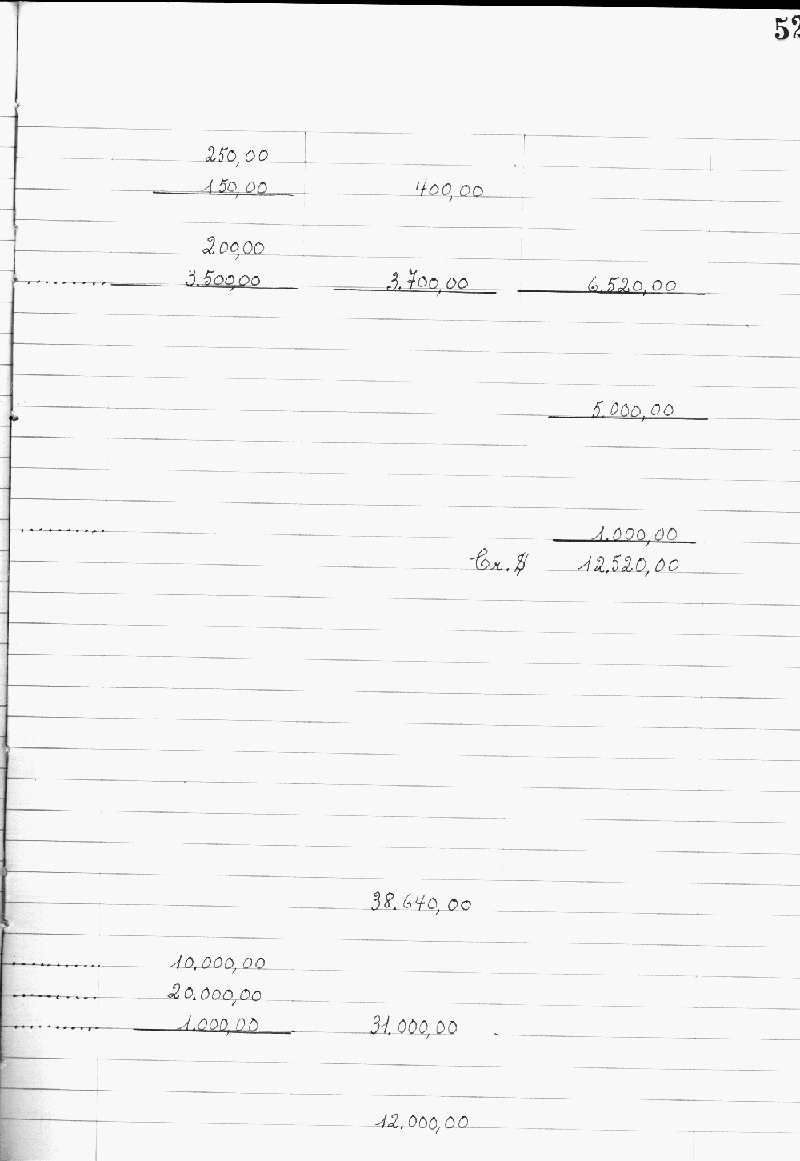 52
250,00
150,00 400,00
200,00
3.500,00 3.700,00 6.520,00
5.000,00
1.000,00
Cr.$ 12.520,00
38.640,00
10.000,00
20.000,00
1.000,00 31.000,00
12.000,00